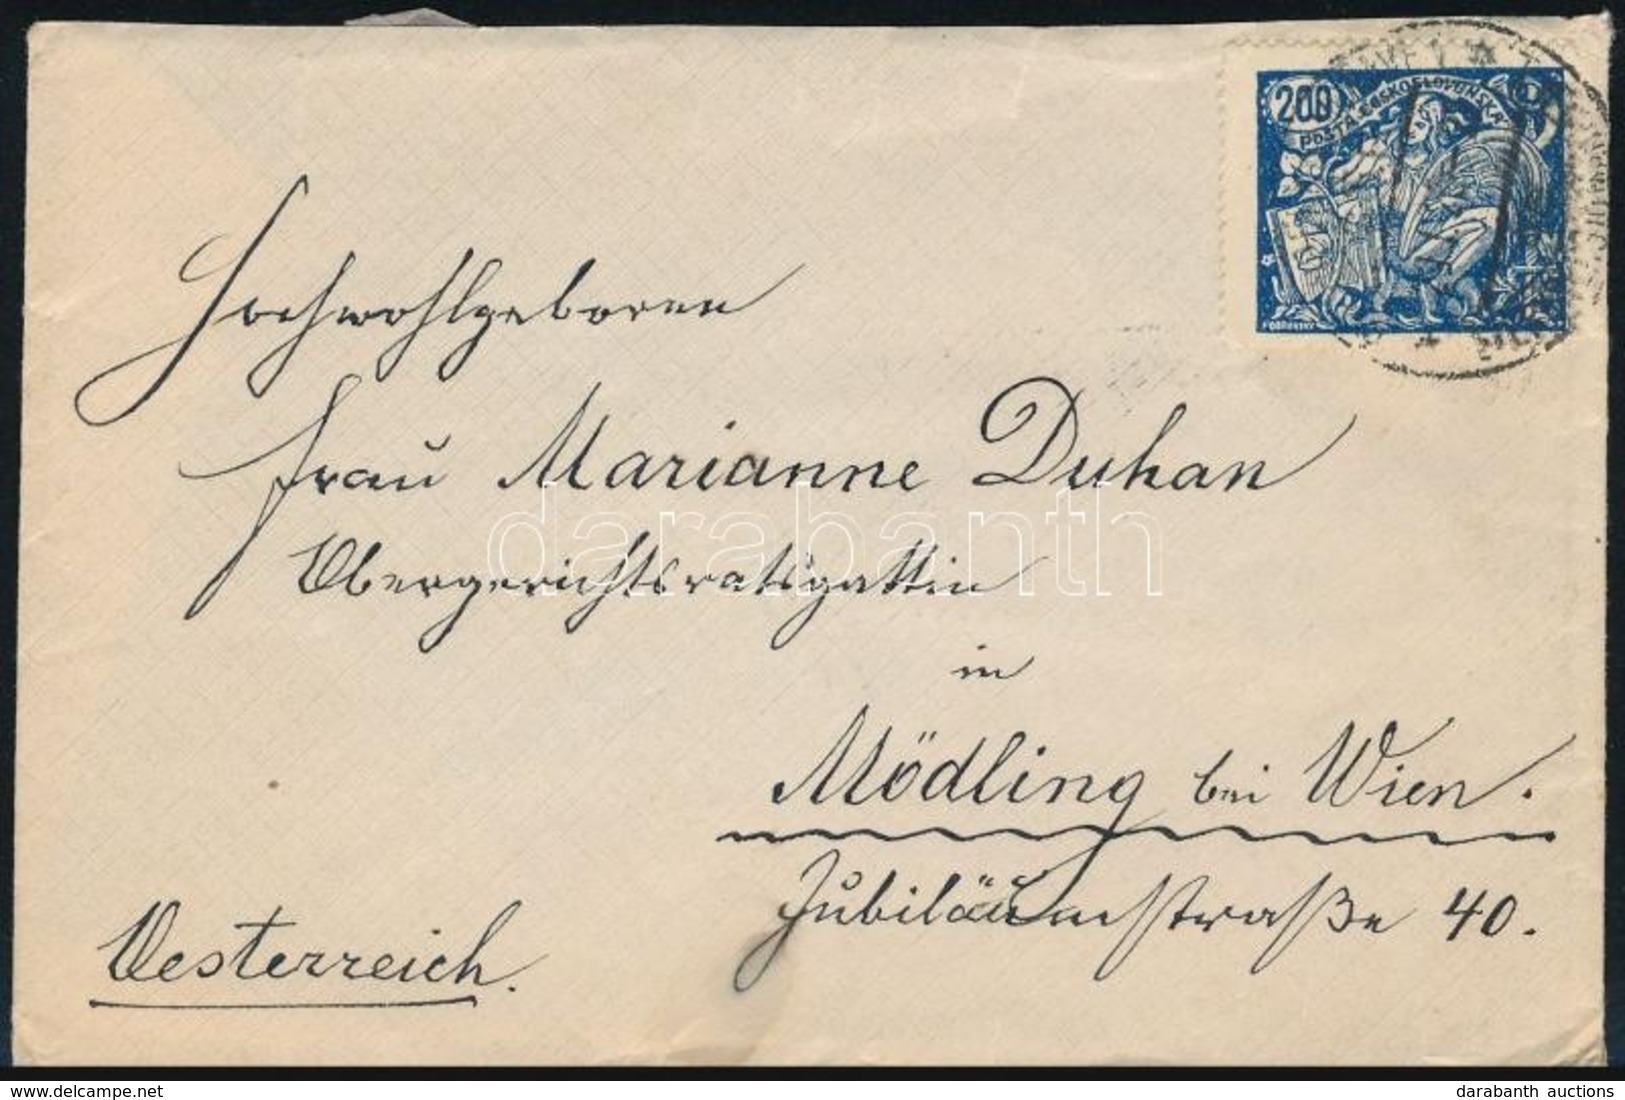 200
POŠTA ČESKOSLOVENSKÁ
OBROVSKÝ
Hochwohlgeboren
Frau Marianne Duhan
Obergerichtsratsgattin
in
Mödling bei Wien.
Jubiläumsstraße 40.
Oesterreich.
darabanth
www.delcampe.net
darabanth auctions